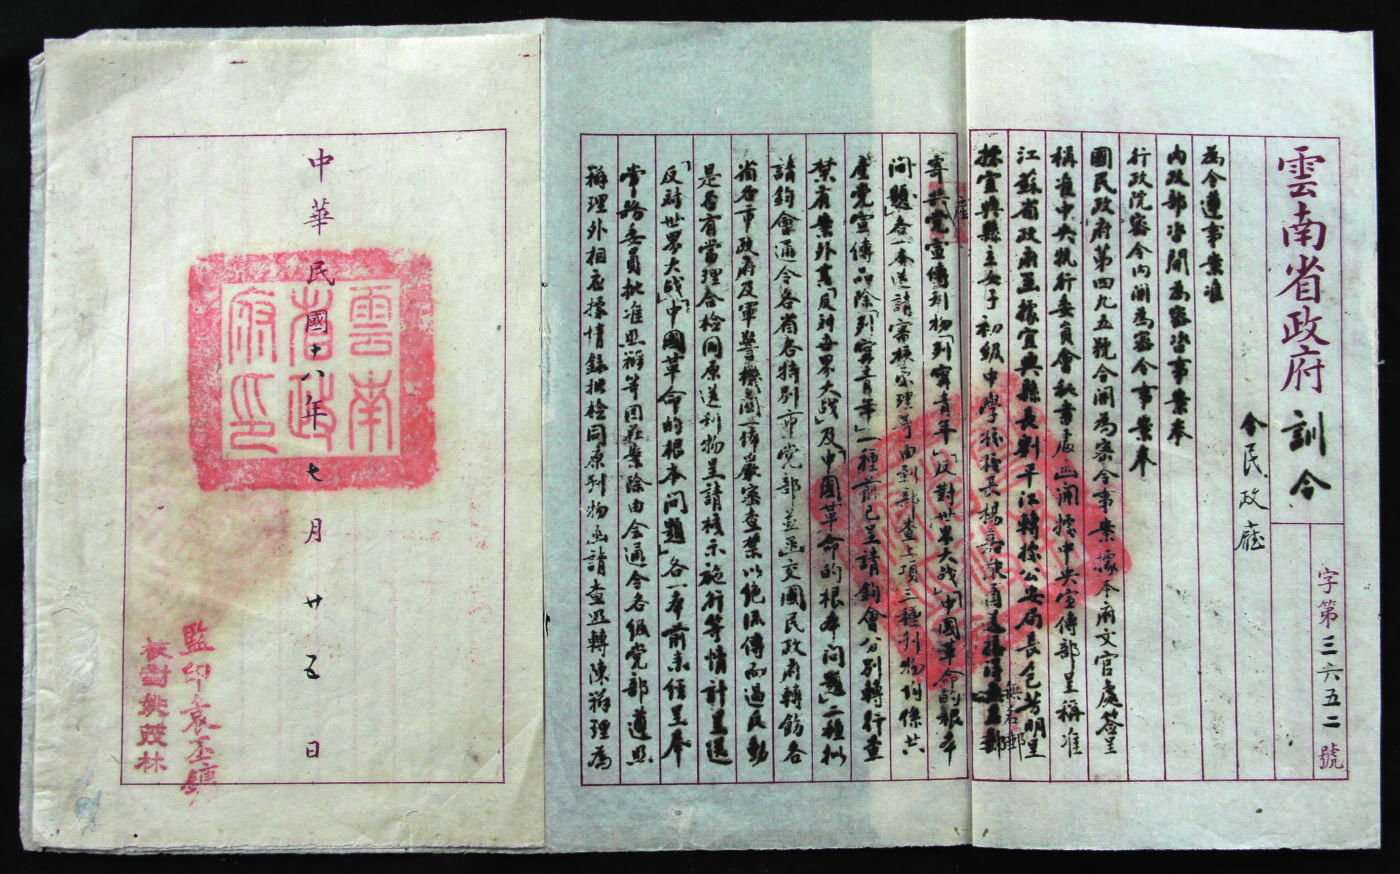 雲南省政府訓令
字第三六五二號
令民政廳
為令遵事案准
內政部咨開為密咨事案奉
行政院密令內開為密令事案奉
國民政府第四九五號令開為密令事案據本府文官處簽呈
稱准中央執行委員會秘書處函開據中央宣傳部呈稱准
江蘇省政府函據宜興縣長劉平江轉據公安局長包芳明呈
據宜興縣立女子初級中學校校長楊嘉 函送接得無名郵
寄共黨宣傳刊物「列寧青年」「反對世界大战」「中國革命的根本
問題」各一本送請審核 理等由到部查上項三種刊物均係共
產党宣傳品除「列寧青年」一種前已呈請鈞會分别轉行查
禁有案外其「反对世界大战」及「中國革命的根本问题」二種拟
請鈞會通令各省各特别市党部並函交國民政府轉飭各
省各市政府及軍警機關一体嚴密查禁以絶流傳而遏反動
是否有當理合检同原送刊物呈請核示施行等情計呈送
「反对世界大战」「中國革命的根本问題」各一本前来经呈奉
常務委員批准照辦等因在案除由会通令各级党部遵照
辦理外相应據情錄批检同原刊物函請查照轉陳辦理為
中華民國十八年七月廿五日
雲南省政府印
監印袁丕鏞
校對姚蔭林